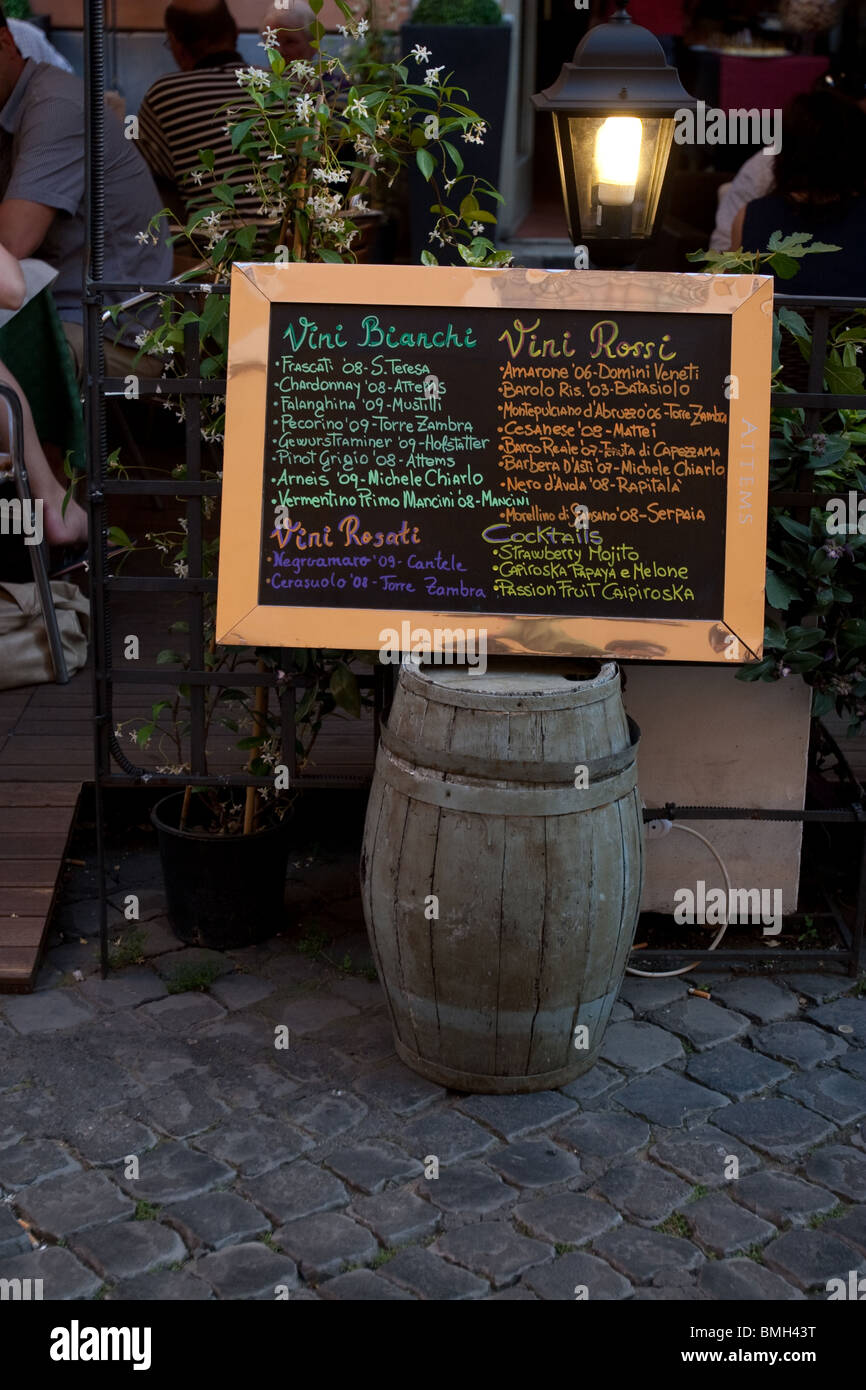 Vini Bianchi
• Frascati '08 - S. Teresa
• Chardonnay '08 - Attems
• Falanghina '09 - Mustilli
• Pecorino '09 - Torre Zambra
• Gewurstraminer '09 - Hofstatter
• Pinot Grigio '08 - Attems
• Arneis '09 - Michele Chiarlo
• Vermentino Primo Mancini '08 - Mancini
Vini Rosati
• Negroamaro '09 - Cantele
• Cerasuolo '08 - Torre Zambra
Vini Rossi
• Amarone '06 - Domini Veneti
• Barolo Ris. '03 - Batasiolo
• Montepulciano d'Abruzzo '06 - Torre Zambra
• Cesanese '08 - Mattei
• Barco Reale '07 - Tenuta di Capezzana
• Barbera D'Asti '07 - Michele Chiarlo
• Nero d'Avola '08 - Rapitalà
• Morellino di Scansano '08 - Serpaia
Cocktails
• Strawberry Mojito
• Capiroska Papaya e Melone
• Passion Fruit Caipiroska
ATTEMS
a alamy
alamy
Image ID: BMH43T
www.alamy.com